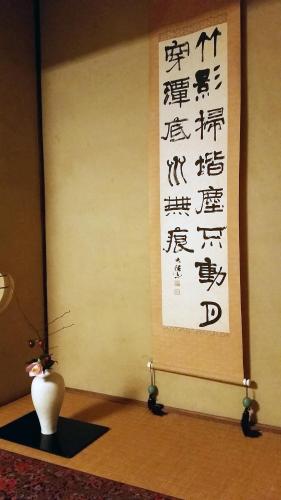 竹影掃堦塵不動月
穿潭底水無痕